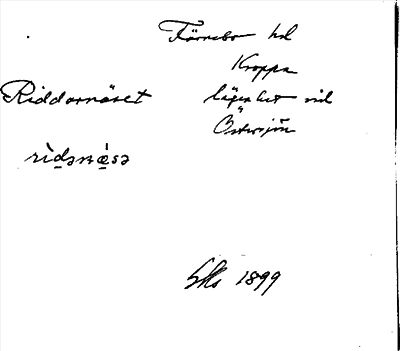 Färnebo hd
Kroppa
Riddarnäset lägenhet vid
Östersjön
rìdanǽsə
1899